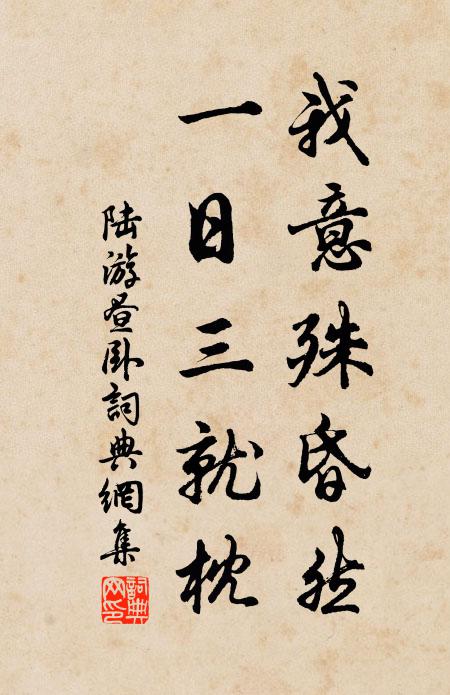 我意殊昏然
一日三就枕
陆游昼卧詞典網集
詞典
网印